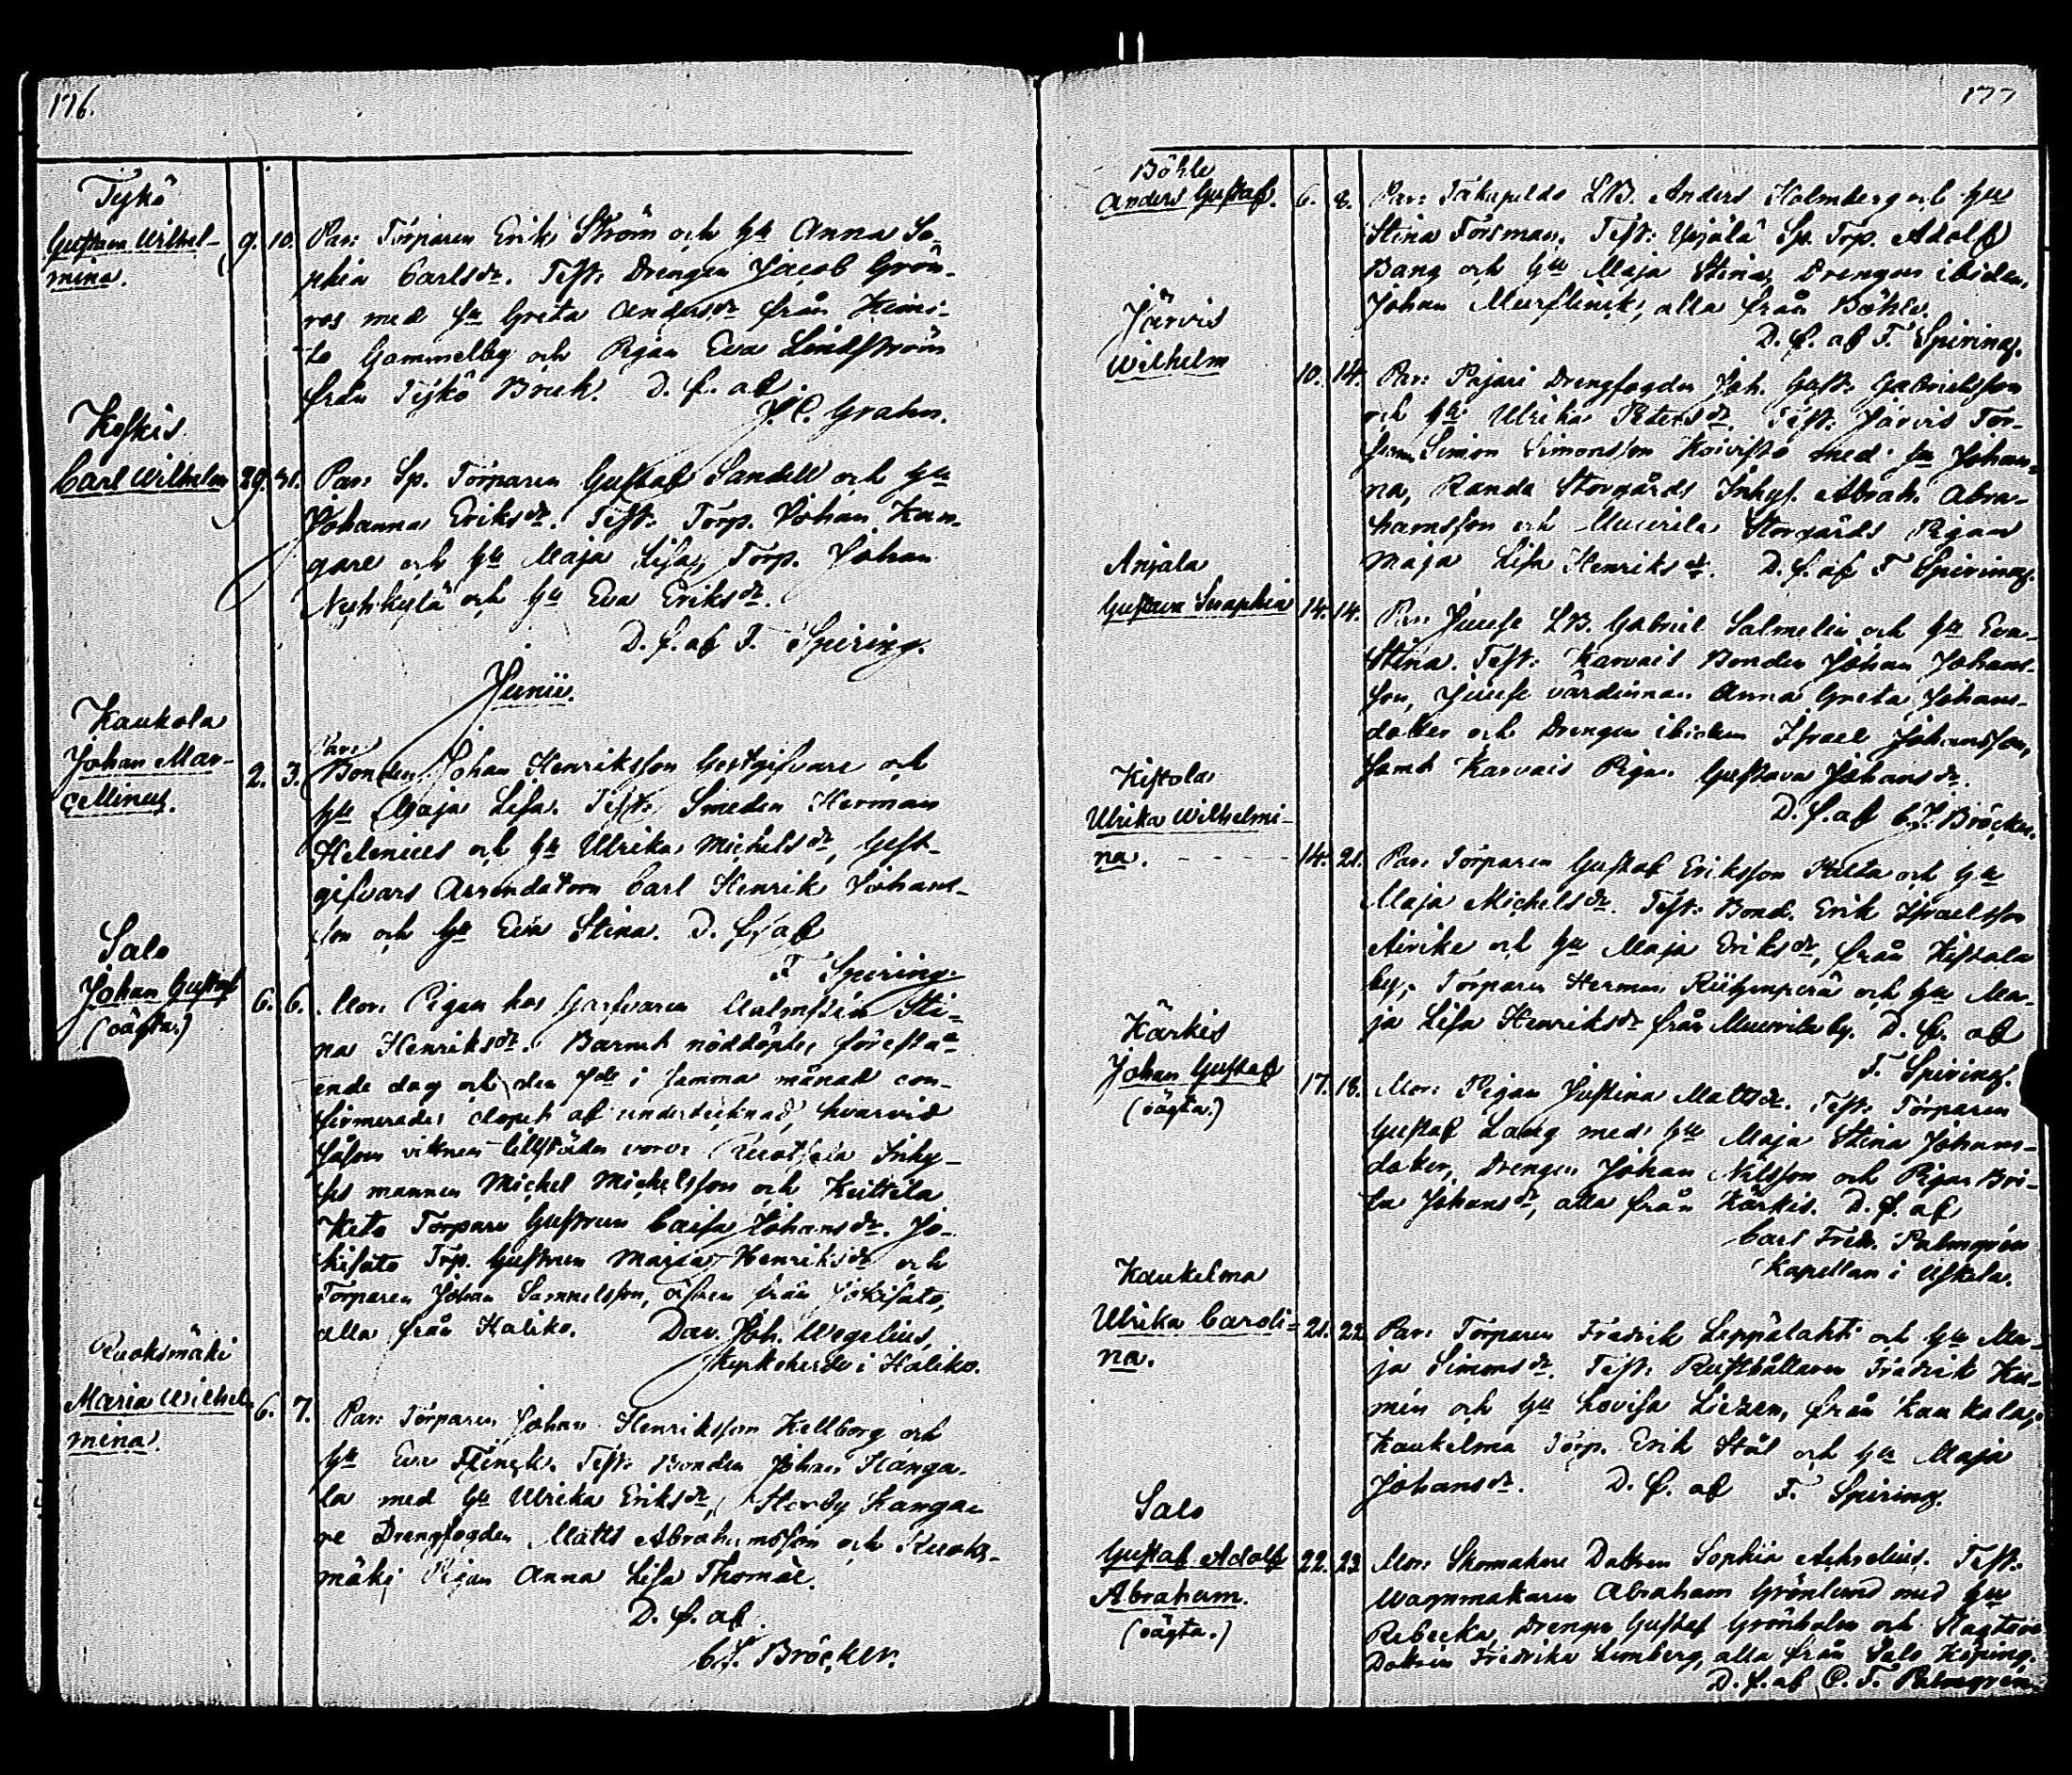 176.
Tykö
Gustava Wilhel-
mina.
9. 10. Par: Torparen Erik Ström och Hu Anna So-
phia Carlsdr. Test: Drengen Jacob Grön-
ros med Hu Greta Andersdr från Kimi-
to Gammelby och Pigan Eva Lindström
från Tykö Bruk. D. f. af
J. C. Grahn.
Koskis
Carl Wilhelm 29. 31. Par: Sp. Torparen Gustaf Sandell och Hu
Johanna Eriksdr. Test: Torp. Johan Kan-
gare och Hu Maja Lisa, Torp. Johan
och Hu Eva Eriksdr.
D. f. af F. Spiring.
Junii.
Kaukola
Johan Mar-
cellinus.
Par:
2. 3. Bonden Johan Henriksson Gestgifvare och
Hu Maja Lisa. Test: Smeden Herman
Helenius och Hu Ulrika Michelsdr, Gest-
gifvars Arrendatorn Carl Henrik Johans-
son och Hu Eva Stina. D. f. af
F. Spiring.
Salo
Johan Gustaf
(oägta.)
6. 6. Mor: Pigan hos Garfvaren Malmstén Sti-
na Henriksdr. Barnet nöddöptes förestå-
ende dag och den 7de i samma månad con-
firmerades dopet af undertecknad, hvarvid
såsom vittnen tillstädes voro: Inhy-
ses mannen Michel Michelsson och Keittilä
Keto Torpare Gustrun Caisa Johansdr. Jo-
kisato Torp. Gustrun Maria Henriksdr och
Torparen Johan Samuelsson, äfven från Jokisato,
alla från Haliko. Dav. Joh. Wegelius,
Kyrkoherde i Haliko.
Ruoksmäki
Maria Wilhel-
mina.
6. 7. Par: Torparen Johan Henriksson Hellborg och
Hu Eva Flinck. Test: Bonden Johan Hanga-
la med Hu Ulrika Eriksdr, Storby Kanga-
re Drengfogden Matts Abrahamsson och Ruoks-
mäki Pigan Anna Lisa Thomæ.
D. f. af
C. J. Bröcker.
177
Böhle
Anders Gustaf. 6. 8. Par: LB. Anders Holmberg och Hu
Stina Forsman. Test: Sp. Torp. Adolf
Bang och Hu Maja Stina, Drengen ibidem,
Johan, alla från Böhle.
D. f. af F. Spiring.
Järvis
Wilhelm
10. 14. Par: Pajari Drengfogden Joh. Gust. Gabrielsson
och Hu Ulrika Petersdr. Test: Järvis Tor-
paren Simon Simonsson Koivisto med Hu Johan-
na, Randa Storgårds Inhys. Abrah. Abra-
hamsson och Muurila Storgårds Pigan
Maja Lisa Henriksdr. D. f. af F. Spiring.
Anjala
Gustava Seraphia 14. 14. Par: Juuse LB. Gabriel Salmelin och Hu Eva
Stina. Test: Karvais Bonden Johan Johans-
son, Juuse värdinnan Anna Greta Johans-
dotter och Drengen ibidem Israel Johansson,
samt Karvais Pig. Gustava Johansdr.
D. f. af C. J. Bröcker.
Kistola
Ulrika Wilhelmi-
na. 14. 21. Par: Torparen Gustaf Eriksson och Hu
Maja Michelsdr. Test: Bond. Erik Israelsson
och Hu Maja Eriksdr, från Kistola
by, Torparen Herman och Hu Ma-
ja Lisa Henriksdr från Muurila by. D. f. af
F. Spiring.
Kärkis
Johan Gustaf
(oägta.)
17. 18. Mor: Pigan Justina Mattsdr. Test: Torparen
Gustaf Lang med Hu Maja Stina Johans-
dotter, Drengen Johan Nilsson och Pigan Bri-
ta Johansdr, alla från Kärkis. D. f. af
Carl Fredr. Palmgrén
Kapellan i Uskela.
Kaukelma
Ulrika Caroli-
na.
21. 22. Par: Torparen Fredrik Leppälahti och Hu Ma-
ja Simonsdr. Test: Rusthållaren Fredrik Ku-
min och Hu Lovisa Lizen, från Kaukola,
Kaukelma Torp. Erik Stål och Hu Maja
Johansdr. D. f. af F. Spiring.
Salo
Gustaf Adolf
Abraham.
(oägta.)
22. 23. Mor: Skomakare Dottren Sophia. Test:
Wagnmakaren Abraham Grönlund med Hu
Rebecka, Drengen Gustaf Grönholm och
Dottren Fredrika Limberg, alla från Salo Köping.
D. f. af C. F. Palmgrén